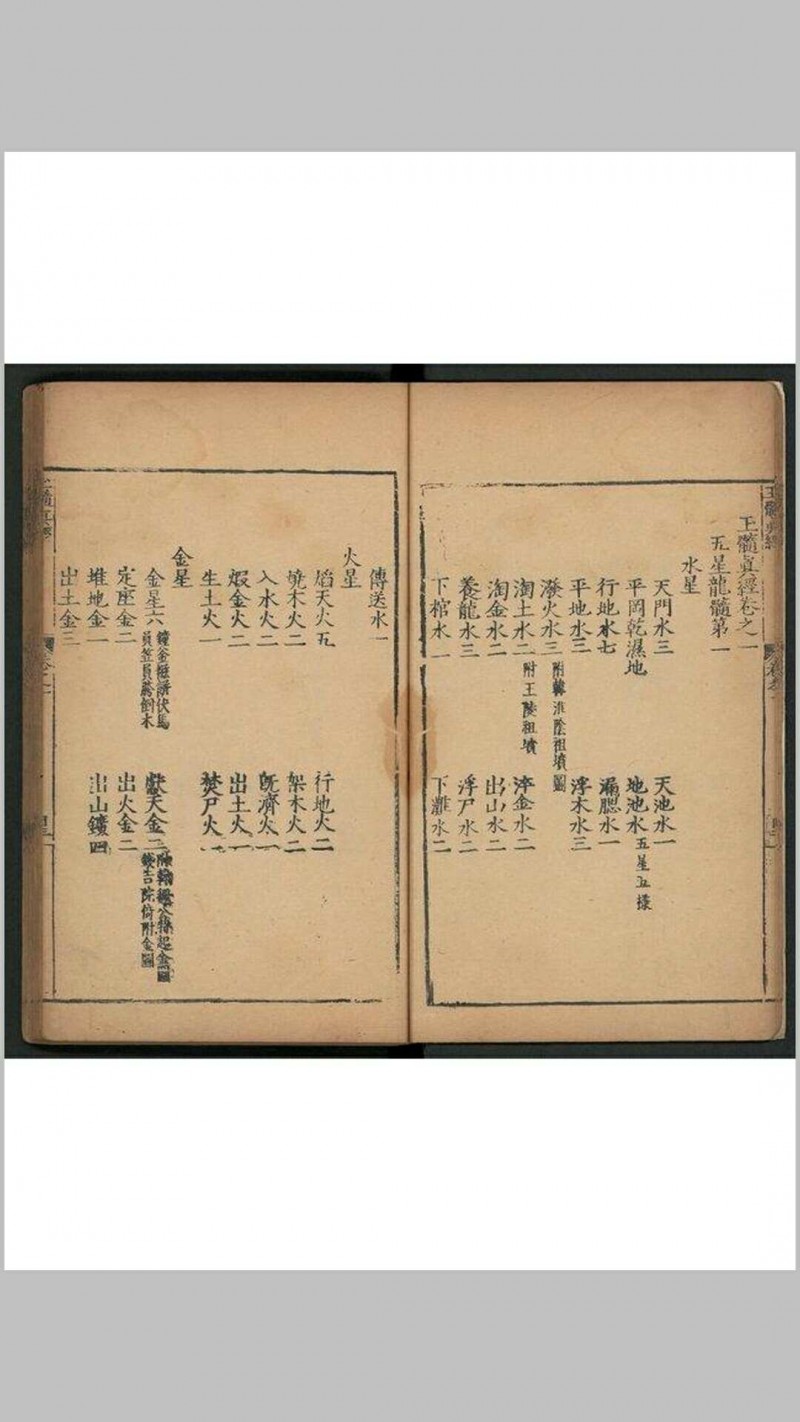 玉髓真經卷之一
五星龍髓第一
水星
天門水三 天池水一
平岡乾濕地 地池水五星五樣
行地水七 漏腮水一
平地水三 浮木水三
潑火水三附韓淮陰祖墳圖
淘土水二附王陵祖墳 淬金水二
淘金水二 出山水二
養龍水三 浮尸水二
下棺水一 下灘水二
傳送水一
火星
焰天火五 行地火二
燒木火二 架木火二
入水火二 旣濟火一
煅金火二 出土火一
生土火一 焚尸火一
金星
金星六
定座金二 出火金二
堆地金一 出山鑛四
出土金三